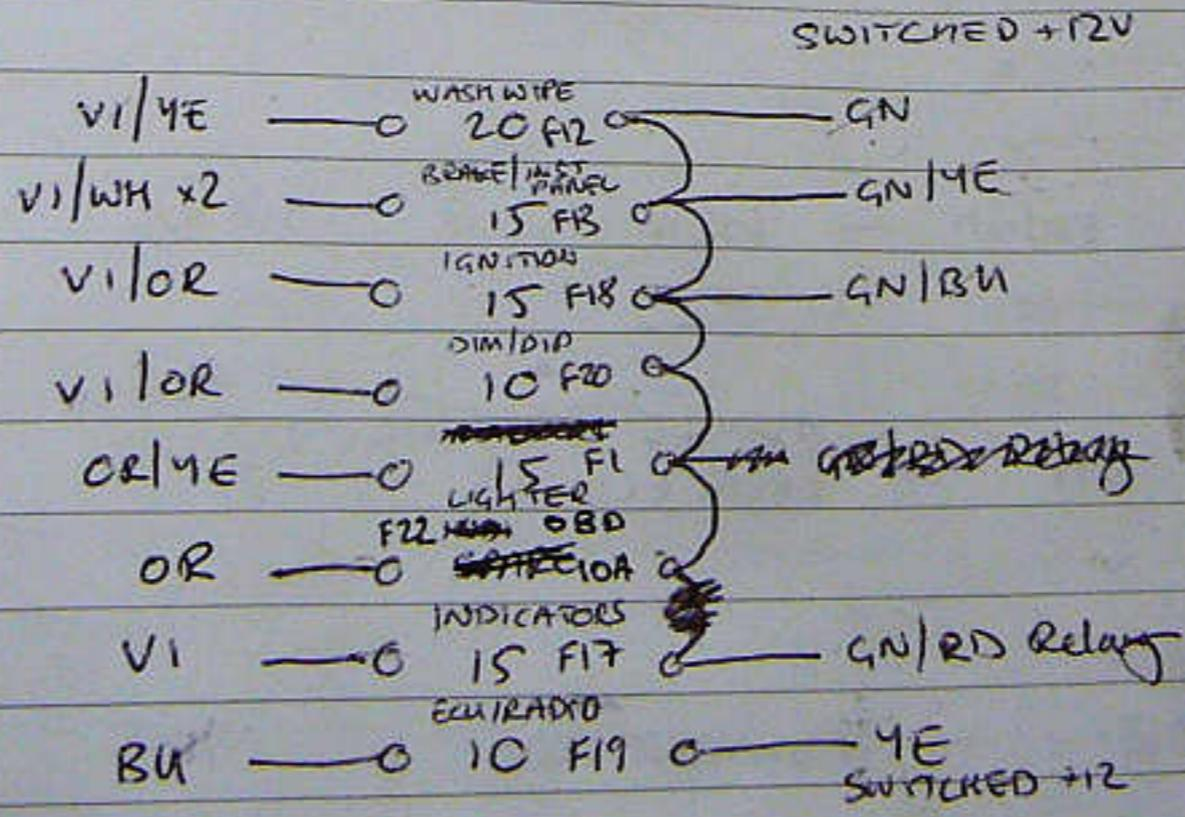 SWITCHED +12V
VI/YE WASH WIPE 20 F12 GN
VI/WH x2 BRAKE/INST PANEL 15 F13 GN/YE
VI/OR IGNITION 15 F18 GN/BU
VI/OR DIM/DIP 10 F20
OR/YE 15 F1
LIGHTER
F22 OBD
OR 10A
INDICATORS
VI 15 F17 GN/RD Relay
ECU/RADIO
BU 10 F19 YE
SWITCHED +12